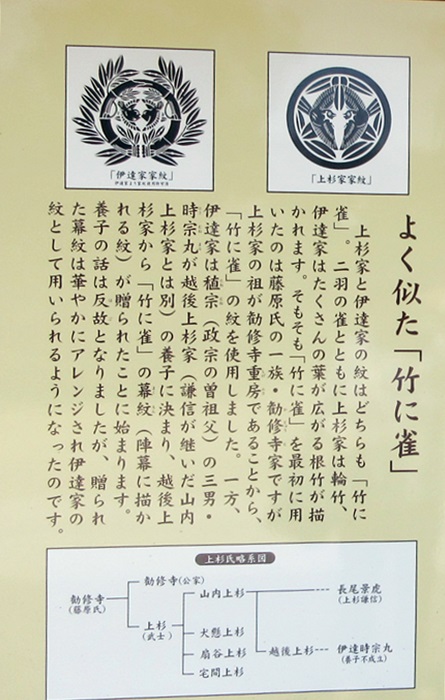 「伊達家家紋」
「上杉家家紋」
よく似た「竹に雀」
上杉家と伊達家の紋はどちらも「竹に
雀」。二羽の雀とともに上杉家は輪竹、
伊達家はたくさんの葉が広がる根竹が描
かれます。そもそも「竹に雀」を最初に用
いたのは藤原氏の一族・勧修寺家ですが
上杉家の祖が勧修寺重房であることから、
「竹に雀」の紋を使用しました。一方、
伊達家は稙宗（政宗の曽祖父）の三男・
時宗丸が越後上杉家（謙信が継いだ山内
上杉家とは別）の養子に決まり、越後上
杉家から「竹に雀」の幕紋（陣幕に描か
れる紋）が贈られたことに始まります。
養子の話は反故となりましたが、贈られ
た幕紋は華やかにアレンジされ伊達家の
紋として用いられるようになったのです。
上杉氏略系図
勧修寺
(藤原氏)
勧修寺(公家)
上杉
(武士)
山内上杉
犬懸上杉
扇谷上杉
宅間上杉
越後上杉
長尾景虎
(上杉謙信)
伊達時宗丸
(養子不成立)